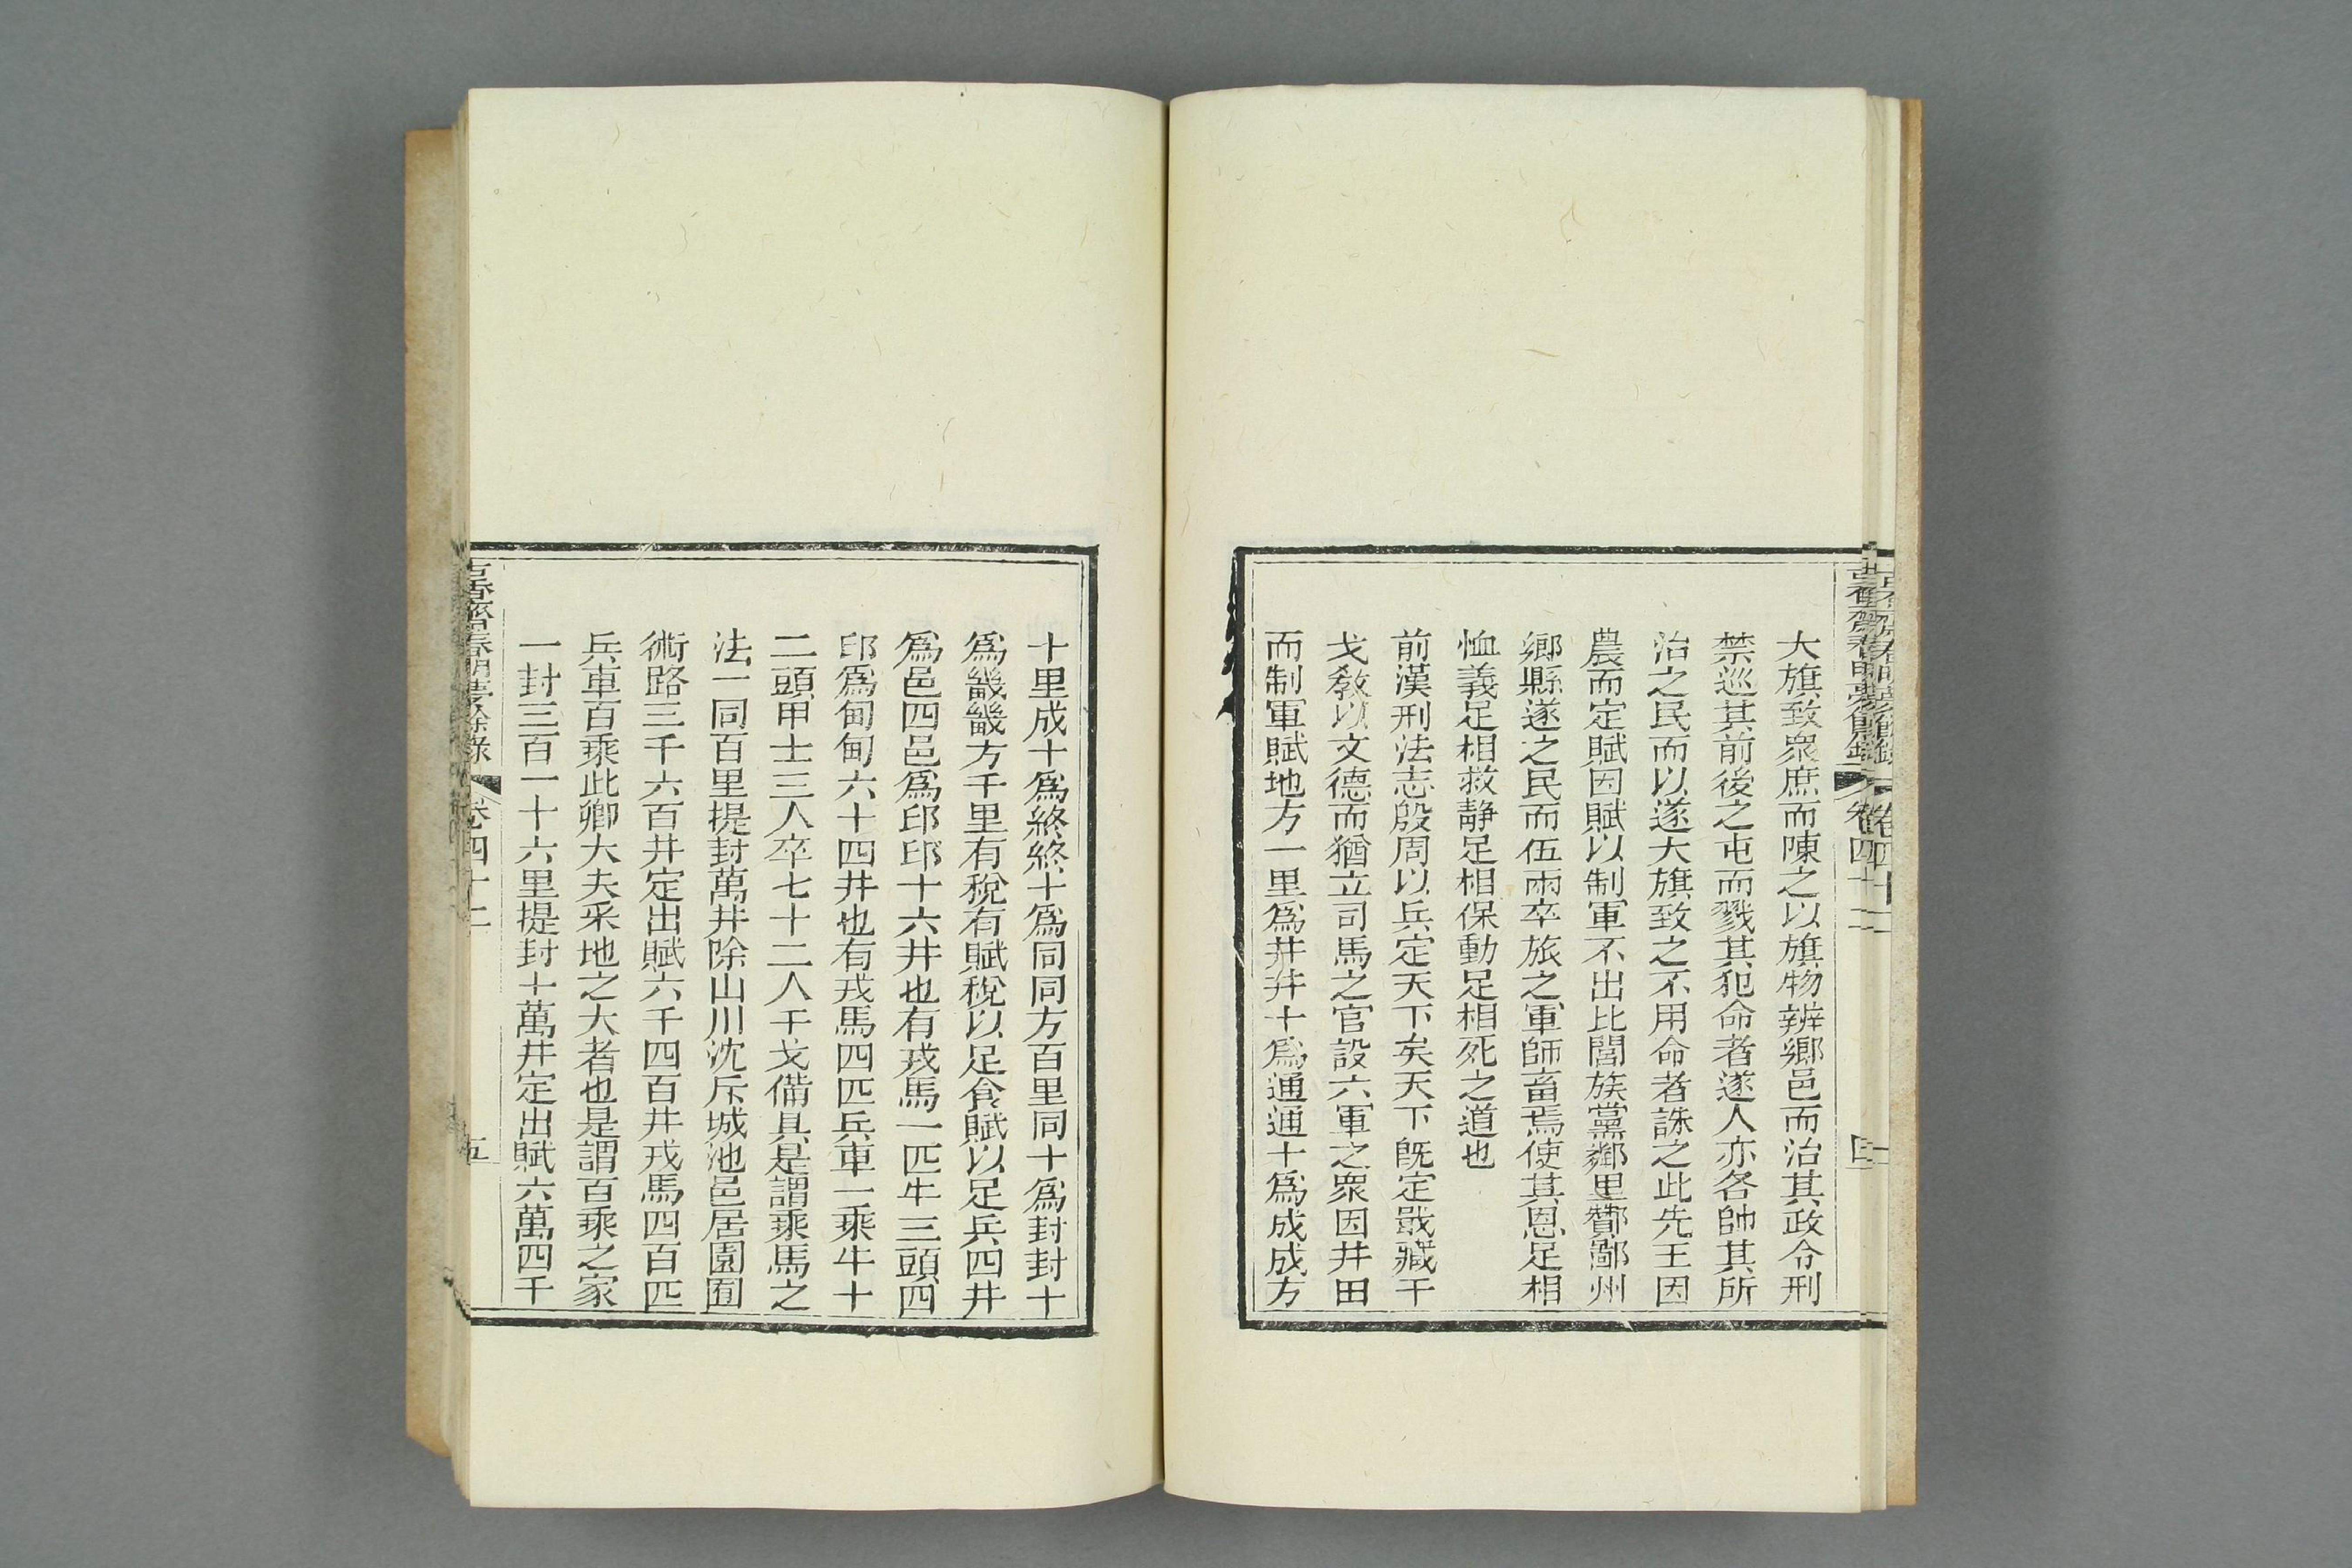 古香齋春明夢餘錄
卷四十二
大旗致衆庶而陳之以旗物辨鄉邑而治其政令刑
禁巡其前後之屯而戮其犯命者遂人亦各帥其所
治之民而以遂大旗致之不用命者誅之此先王因
農而定賦因賦以制軍不出比閭族黨鄰里酇鄙州
鄉縣遂之民而伍兩卒旅之軍師畜焉使其恩足相
恤義足相救静足相保動足相死之道也
前漢刑法志殷周以兵定天下矣天下既定戢藏干
戈敎以文德而猶立司馬之官設六軍之衆因井田
而制軍賦地方一里爲井井十爲通通十爲成成方
十里成十爲終終十爲同同方百里同十爲封封十
爲畿畿方千里有稅有賦稅以足食賦以足兵四井
爲邑四邑爲邱邱十六井也有戎馬一匹牛三頭四
邱爲甸甸六十四井也有戎馬四匹兵車一乘牛十
二頭甲士三人卒七十二人干戈備具是謂乘馬之
法一同百里提封萬井除山川沈斥城池邑居園囿
術路三千六百井定出賦六千四百井戎馬四百匹
兵車百乘此卿大夫采地之大者也是謂百乘之家
一封三百一十六里提封十萬井定出賦六萬四千
古香齋春明夢餘錄
卷四十二
五